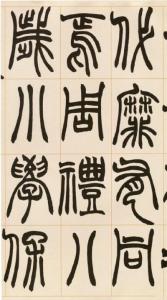 代靡有同
焉周禮八
歲小學保